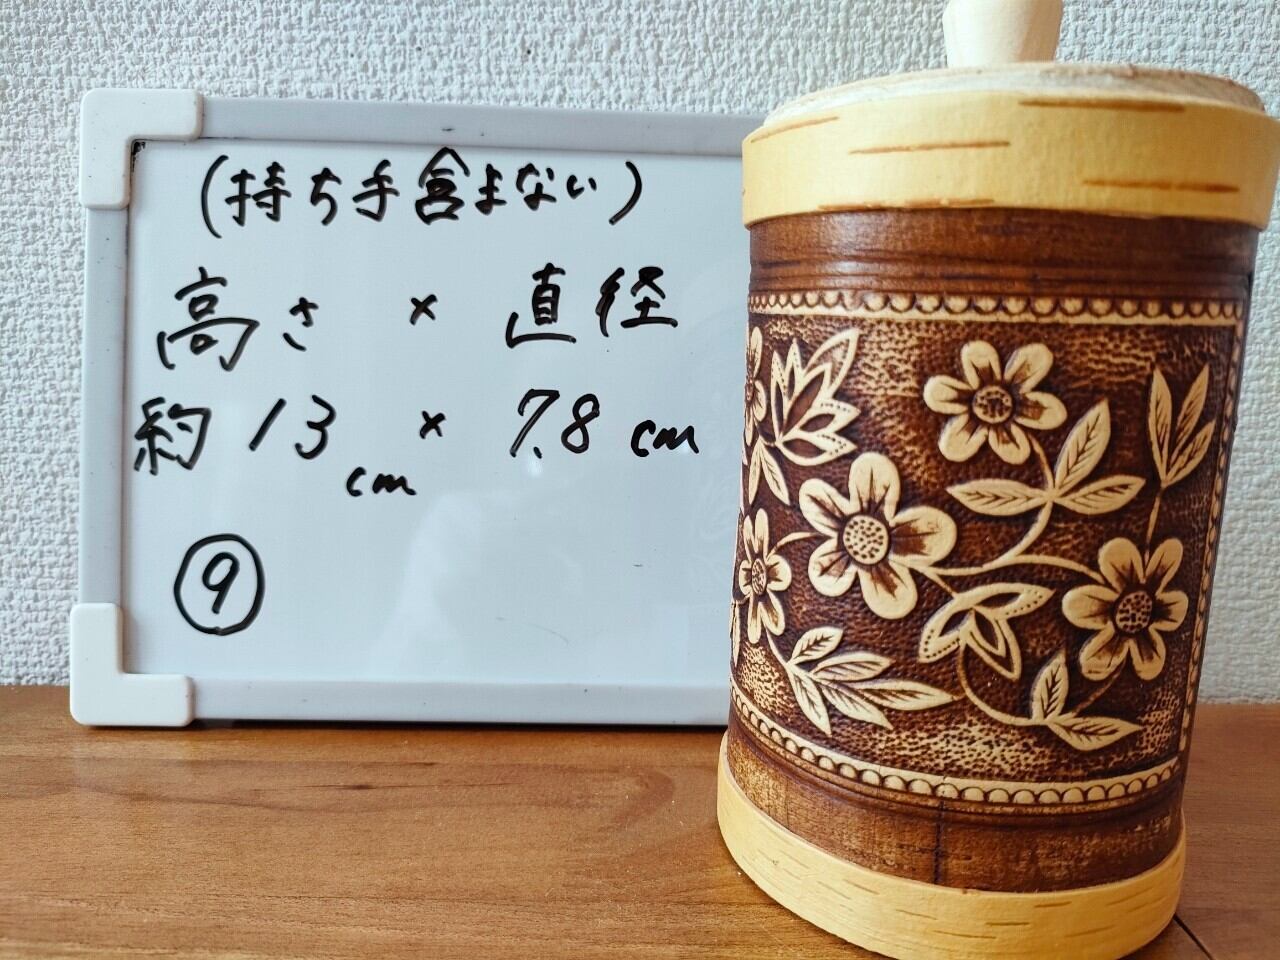 (持ち手含まない)
高さ × 直径
約13cm × 7.8cm
⑨